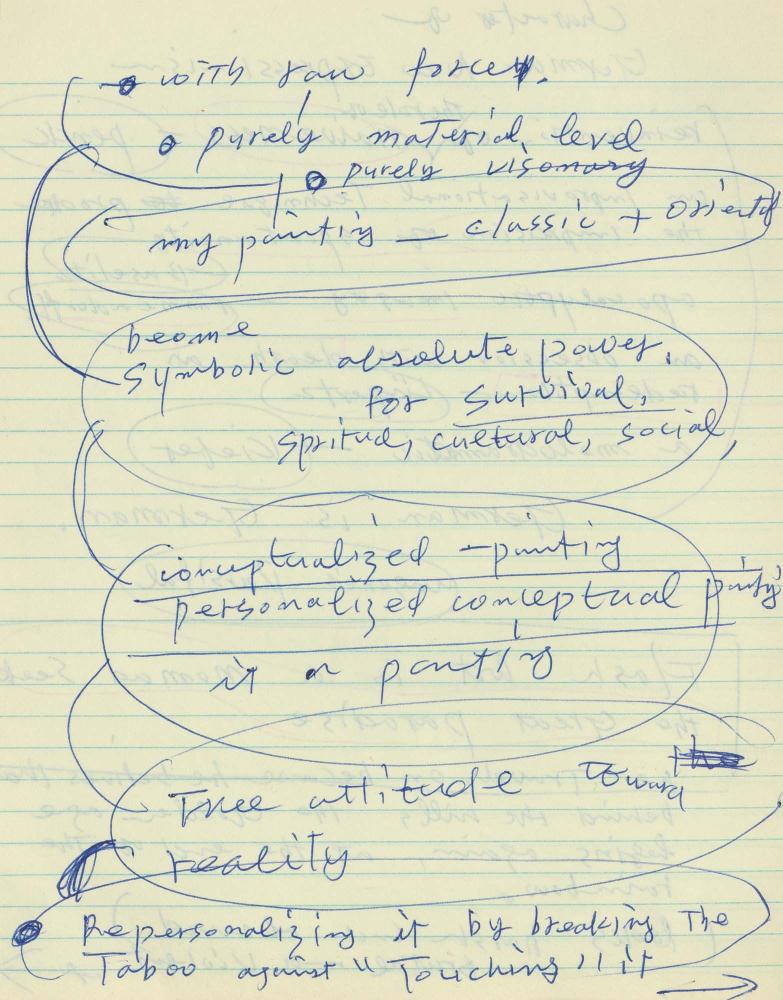 • with raw force.
• purely material level
• purely visonary
my painting — classic + Oriental
become
Symbolic absolute power.
for survival,
spritud, cultural, social,
conceptualized - painting
personalized conceptual painting
it on painting
Free attitude toward
reality
• Repersonalizing it by breaking The
Taboo against "Touching" it